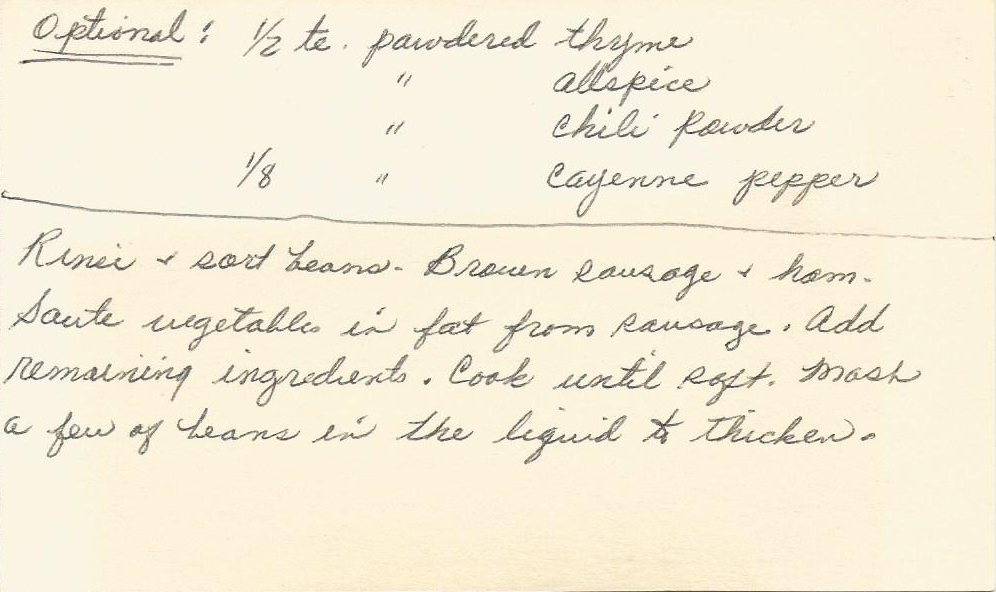 Optional: 1/2 te. powdered thyme
" allspice
" chili powder
1/8 " cayenne pepper
Rinse + sort beans. Brown sausage + ham.
Saute vegetables in fat from sausage. Add
remaining ingredients. Cook until soft. Mash
a few of beans in the liquid to thicken.